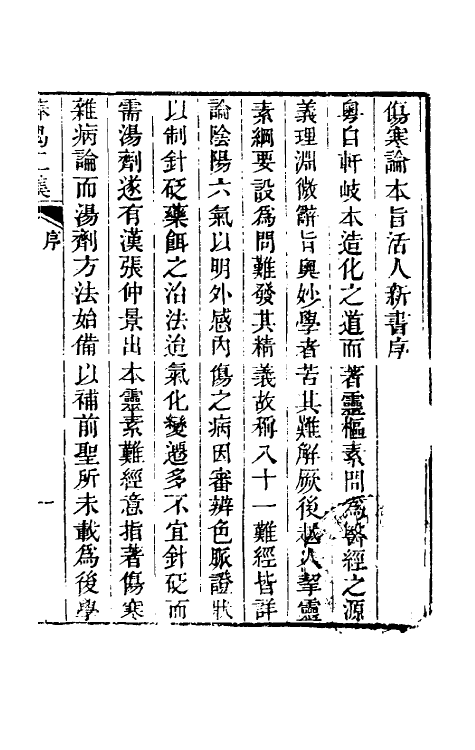 傷寒論本旨活人新書序
粵自軒岐本造化之道而著靈樞素問為醫經之源
義理淵微辭旨奧妙學者苦其難解厥後越人挈靈
素綱要設為問難發其精義故稱八十一難經皆詳
論陰陽六氣以明外感內傷之病因審辨色脈證狀
以制針砭藥餌之治法迨氣化變遷多不宜針砭而
需湯劑遂有漢張仲景出本靈素難經意指著傷寒
雜病論而湯劑方法始備以補前聖所未載為後學
集
序
一